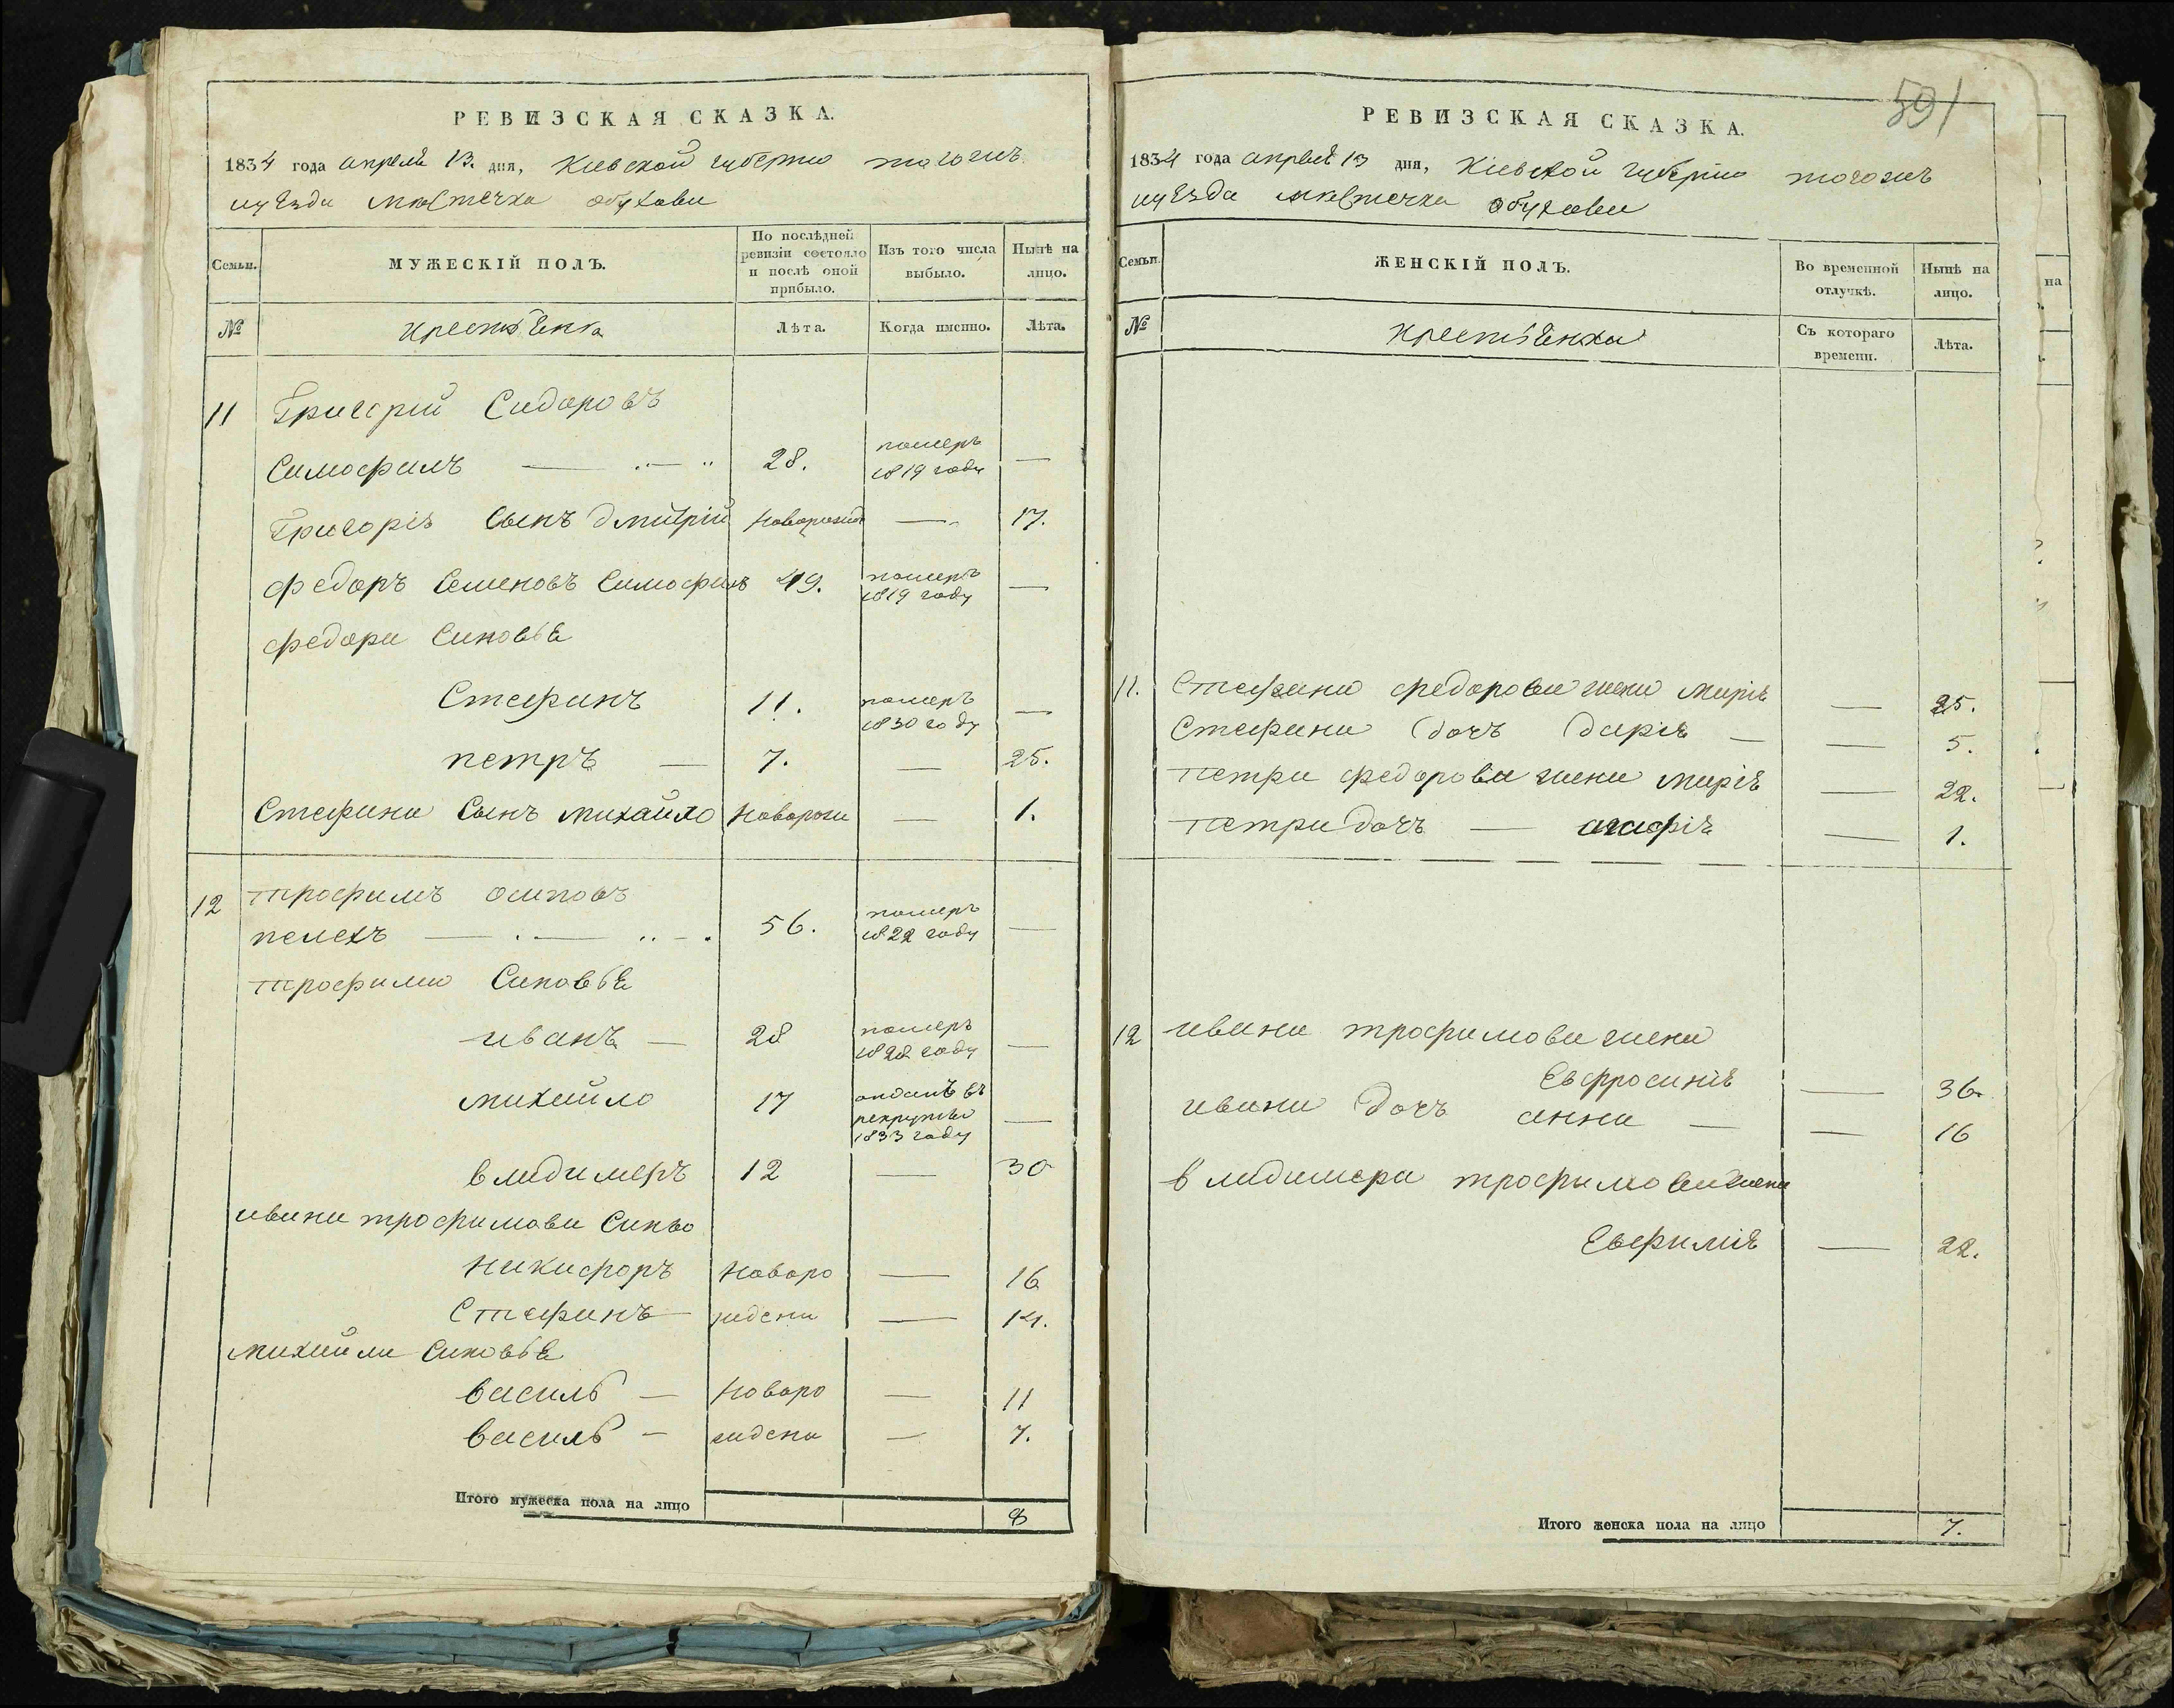 РЕВИЗСКАЯ СКАЗКА.
1834 года апреля 13. дня, Кіевской губерніи тогожъ
уѣзда мѣстечка обухова
Семьи.
МУЖЕСКІЙ ПОЛЪ.
По послѣдней ревизіи состояло и послѣ оной прибыло.
Изъ того числа выбыло.
Нынѣ на лицо.
№
Лѣта.
Когда именно.
Лѣта.
11 Григорій Сидоровъ
Самофалъ 28. померъ 1819 году —
Григорія Сынъ дмитрій новорожде — 17.
федоръ Семеновъ Самофалъ 49. померъ 1819 году —
федора Синовья
Стефанъ 11. померъ 1830 году —
петръ — 7. — 25.
Стефана Сынъ михайло новорож — 1.
12 трофимъ осиповъ
пелехъ 56. померъ 1822 году —
трофима Синовья
иванъ — 28 померъ 1828 году —
михайло 17 отданъ въ рекруты 1833 году —
владимеръ 12 — 30
ивана трофимова Синьо
никифоръ новоро — 16
Стефанъ ждени — 14.
михайла Синовья
василь — новоро — 11
василь — ждени — 7.
Итого мужеска пола на лицо 8
591
РЕВИЗСКАЯ СКАЗКА.
1834 года апреля 13 дня, Кіевской губерніи тогожъ
уѣзда мѣстечка обухова
Семьи.
ЖЕНСКІЙ ПОЛЪ.
Во временной отлучкѣ.
Нынѣ на лицо.
№
Съ котораго времени.
Лѣта.
11. Стефана федорова жена марія — 25.
Стефана дочъ дарія — — 5.
петра федорова жена марія — 22.
петра дочъ — агафія — 1.
12 ивана трофимова жена
Евфросинія — 36.
ивана дочъ анна — — 16
владимера трофимова жена
Евфимія — 22.
Итого женска пола на лицо 7.